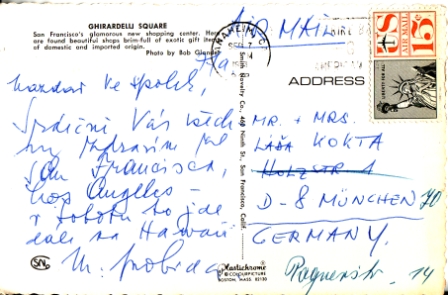 GHIRARDELLI SQUARE
San Francisco's glamorous new shopping center. Here
are found beautiful shops brim-full of exotic gift items
of domestic and imported origin.
Photo by Bob Glander
Nazdar ve spolek,
Srdečně Vás všechny
zdravím
San Francisca,
Los Angeles –
v sobotu to jde
dále na Hawaii
M.
Smith Novelty Co., 460 Ninth St., San Francisco, Calif.
Plastichrome
® COLOURPICTURE
BOSTON, MASS. 02130
ANAHEIM, CA
SEP 7
AIR MAIL
ADDRESS
US AIR MAIL 15¢
LIBERTY FOR ALL
MR. + MRS.
LÁĎA KOKTA
HOLZSTR
D-8 MÜNCHEN 70
GERMANY.
14